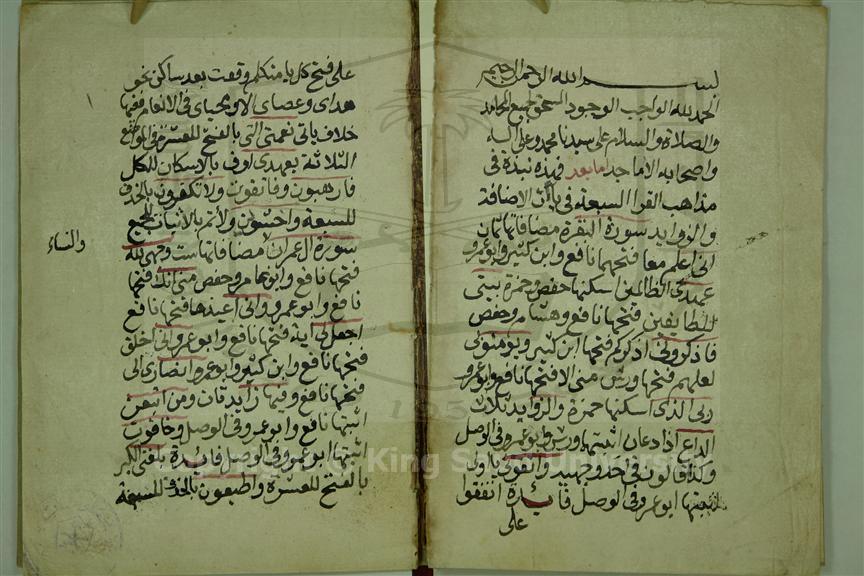 بسم الله الرحمن الرحيم
الحمد لله الواجب الوجود المستحق جميع المحامد
والصلاة والسلام على سيدنا محمد وعلى اله
واصحابه الاماجد اما بعد فهذه نبذة فى
مذاهب القرا السبعة فى ياآت الاضافة
والزوايد سورة البقرة مضافاتها ثمان
انى اعلم معا فتحهما نافع وابن كثير وابو عمرو
عهدى الظالمين اسكنها حفص وحمزة بيتى
للطايفين فتحها نافع وهشام وحفص
فاذكرونى اذكركم فتحها ابن كثير وبى
لعلهم فتحها ورش منى الا فتحها نافع وابو عمرو
ربى الذى اسكنها حمزة والزوايد ثلاث
الداع اذا دعان اثبتهما ورش وابو عمرو فى الوصل
وكذا قالون فى احد وجهيه واتقون يا اولى
اثبتها ابو عمرو فى الوصل فائدة اتفقوا
على
على فتح كل يا متكلم وقعت بعد ساكن نحو
هداى وعصاى الا ومحياى فى الانعام ففيها
خلاف ياتى نعمتى التى بالفتح للعشرة فى المواضع
الثلاثة بعهدى اوف بالاسكان للكل
فارهبون وفاتقون ولا تكفرون بالحذف
للسبعة واخشونى ولاتم بالاثبات للجميع
سورة ال عمران مضافاتها ست وجهى لله
فتحها نافع وابو عامر وحفص منى انك فتحها
نافع وابو عمرو وانى اعيذها فتحها نافع
اجعل لى اية فتحها نافع وابو عمرو انى اخلق
فتحها نافع وابن كثير وابو عمرو انصارى الى
فتحها نافع وفيها زايدتان ومن اتبعن
اثبتها نافع وابو عمرو فى الوصل وخافون
اثبتها ابو عمرو فى الوصل فائدة بلغنى الكبر
بالفتح للعشرة واطيعون بالحذف للسبعة
والنساء
King Saud University